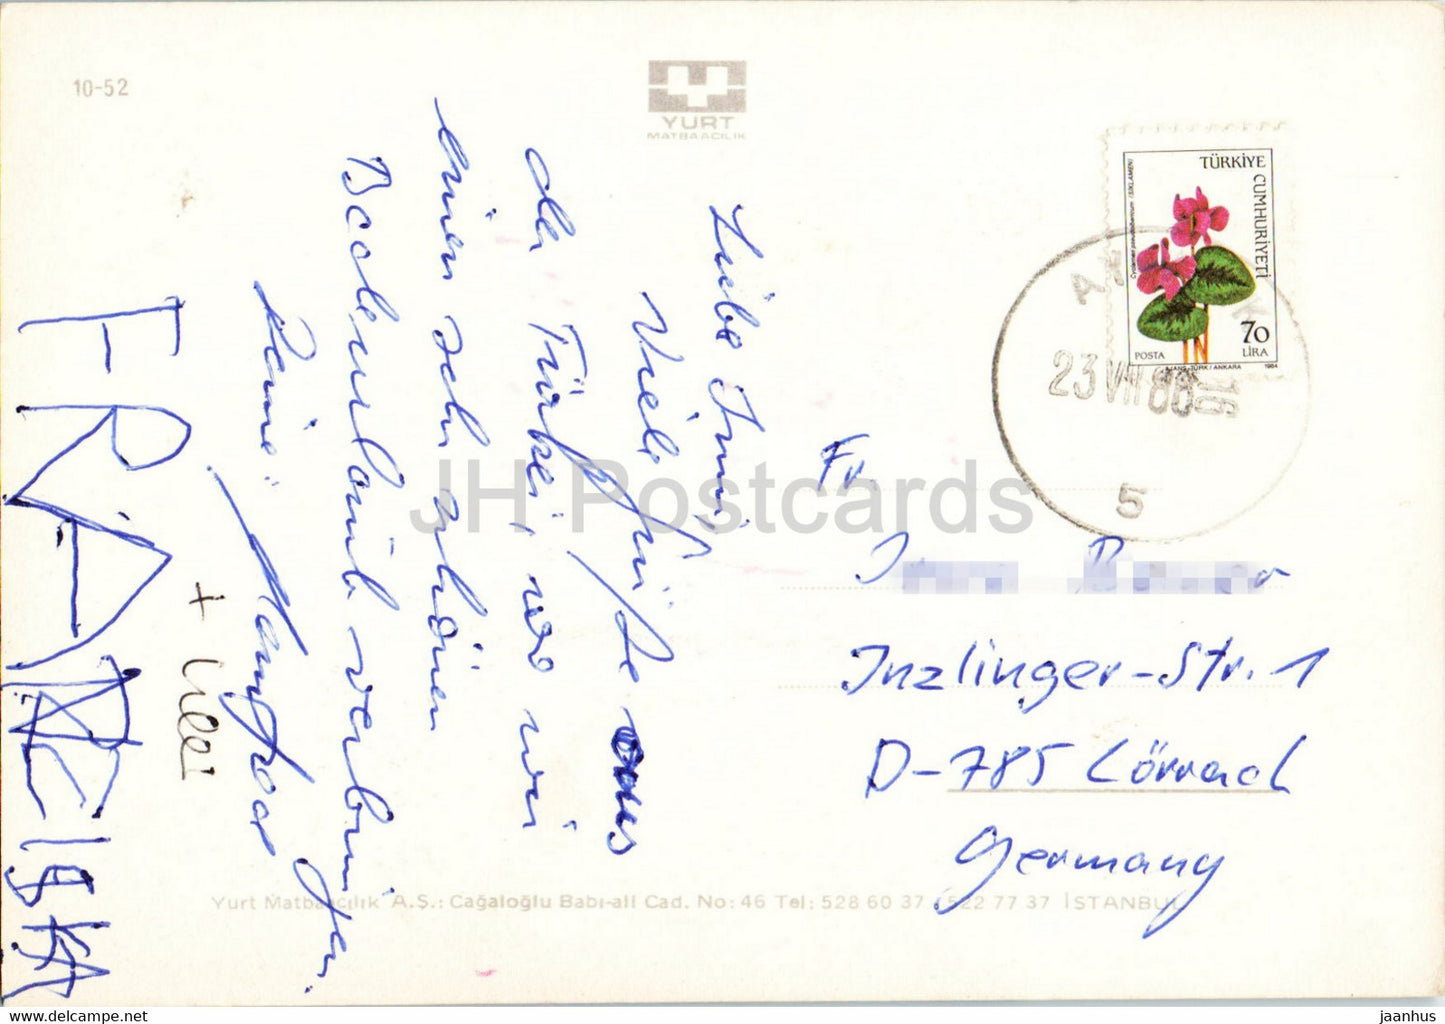 10-52
YURT
MATBAACILIK
Liebe Irmi,
Viele Grüße aus
der Türkei, wo wir
einen sehr schönen
Badeurlaub verbringen.
Manfred
+ Ulli
FRANZISKA
TÜRKİYE CUMHURİYETİ
70
LİRA
POSTA
AJANS-TÜRK / ANKARA 1984
23 VII 88 16
5
Fr.
Inzlinger-Str. 1
D-785 Lörrach
Germany
Yurt Matbaacılık A.Ş.: Cağaloğlu Babı-ali Cad. No: 46 Tel: 528 60 37 / 522 77 37 İSTANBUL
JH Postcards
www.delcampe.net
jaanhus